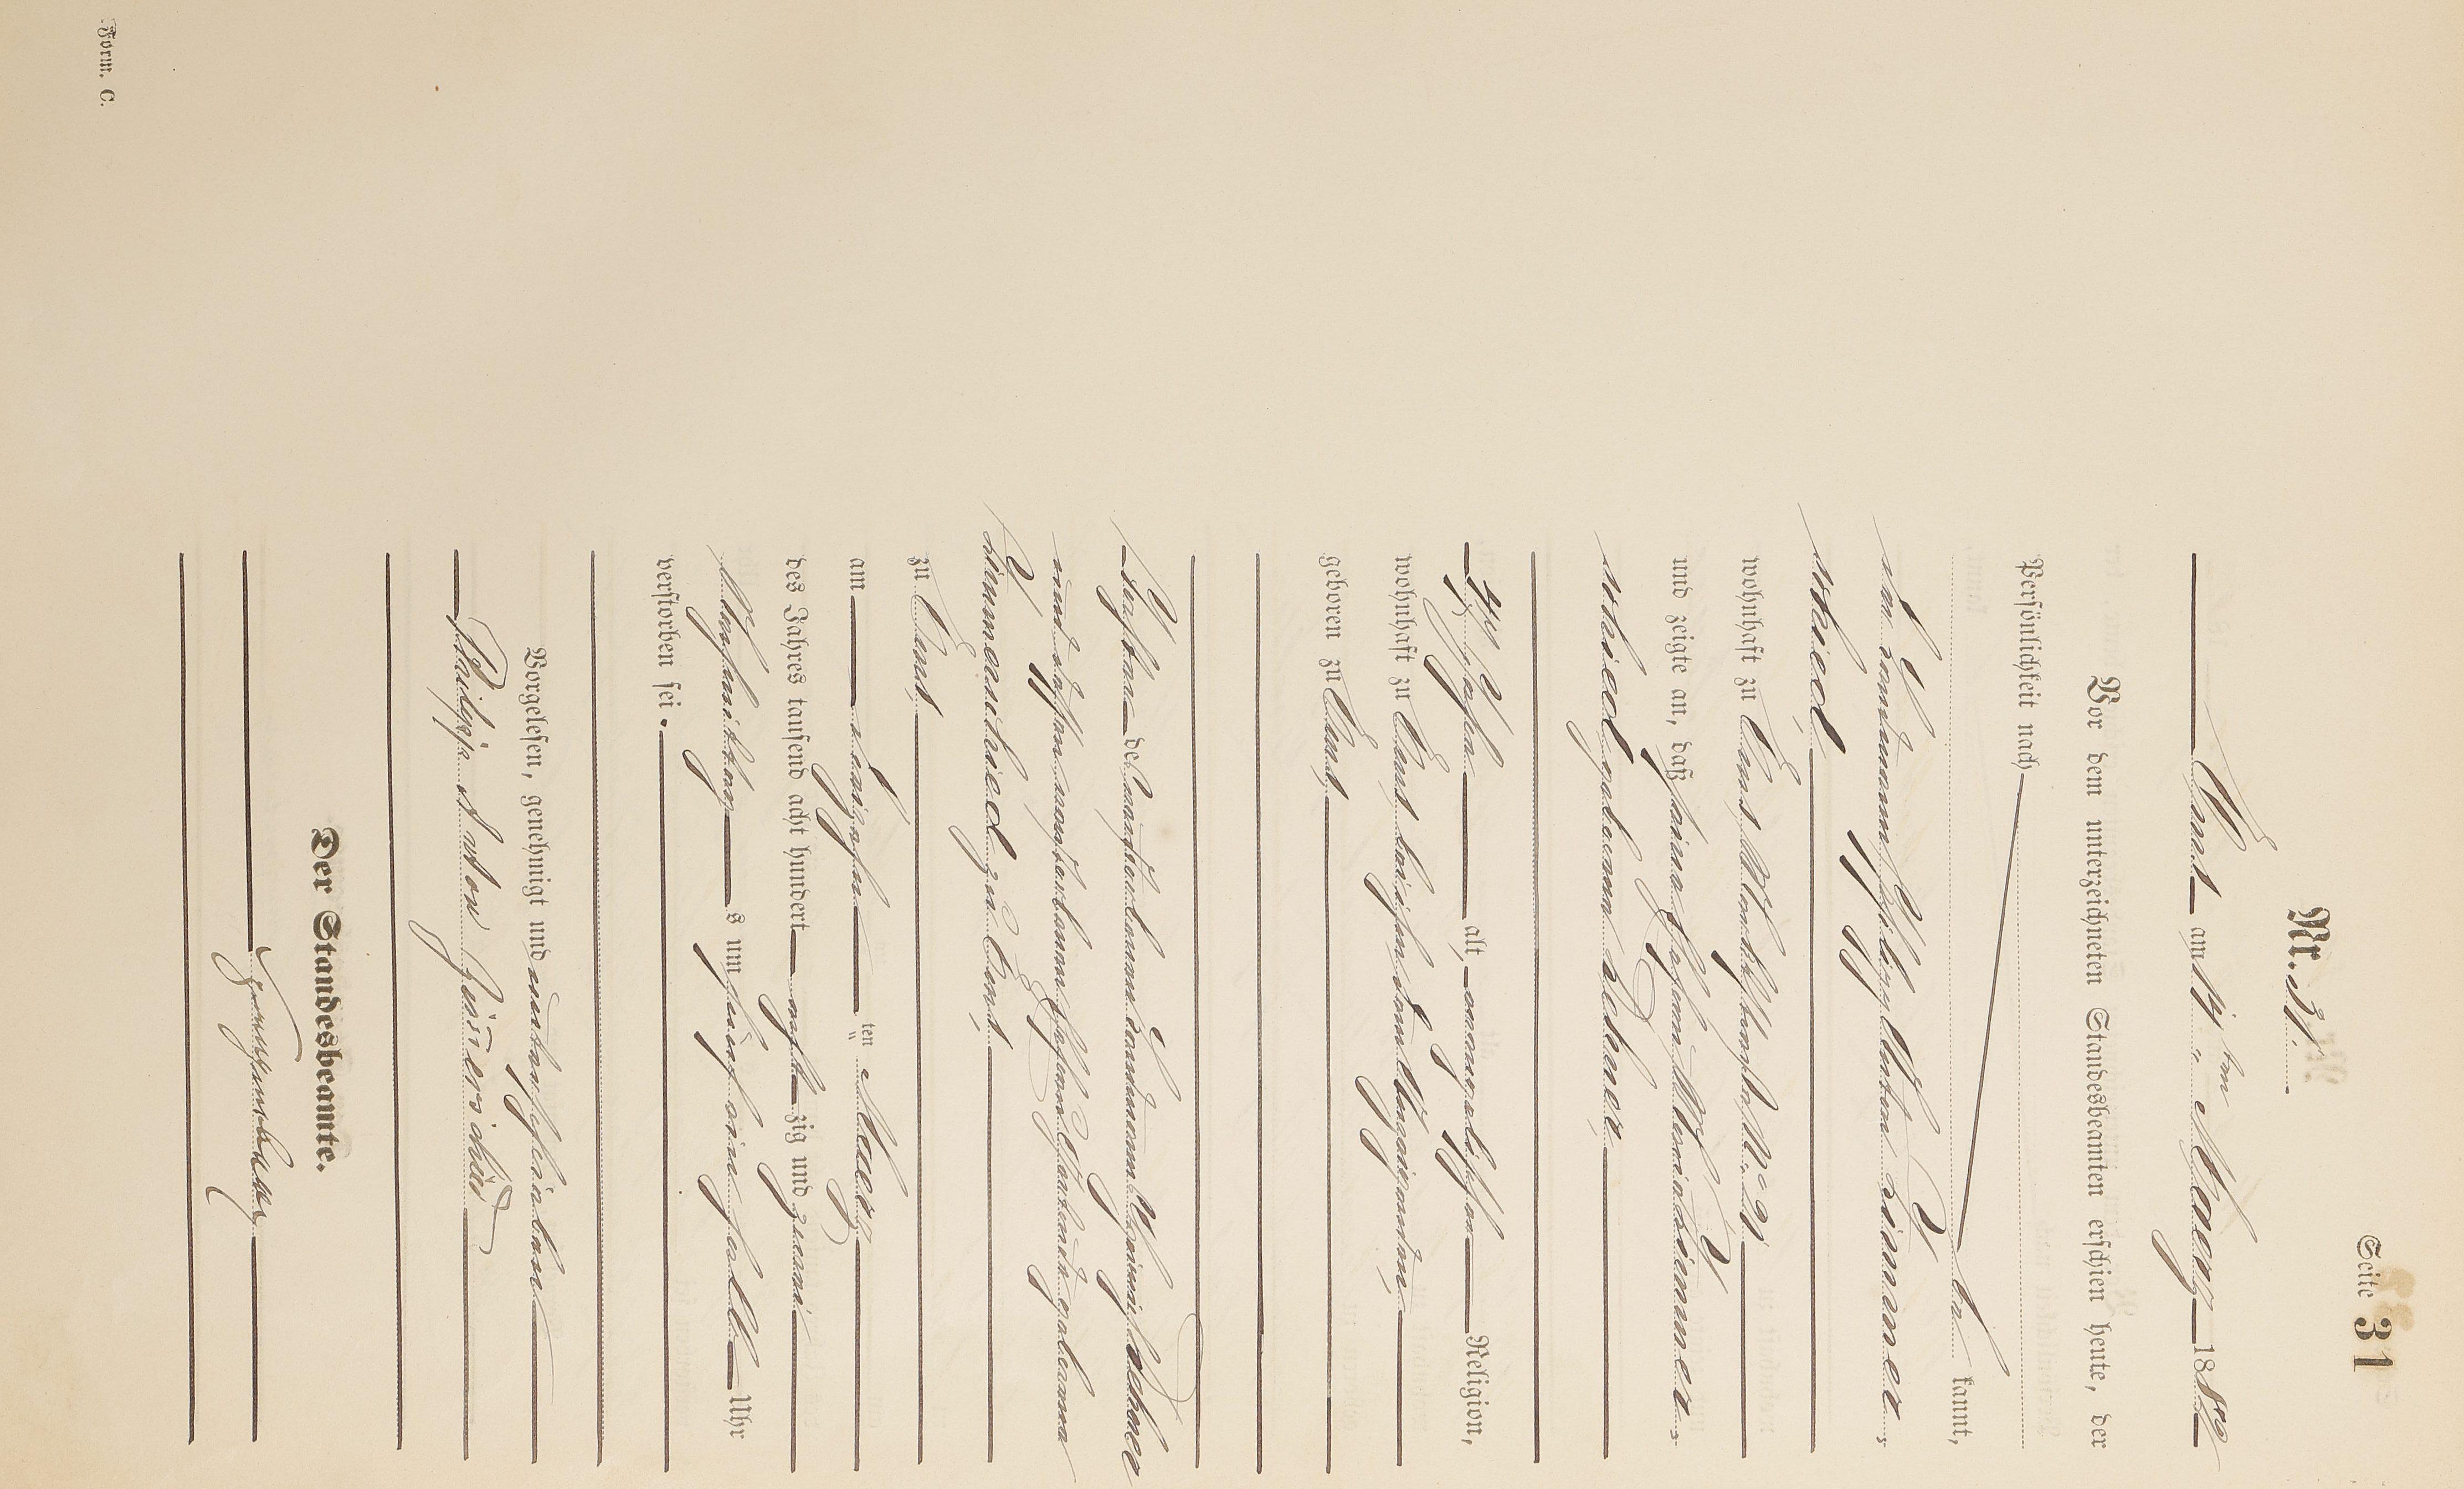 Seite 31
Nr. 31.
Caub am 14 ten Maerz 1882
Vor dem unterzeichneten Standesbeamten erschien heute, der
Persönlichkeit nach
bekannt,
der Landmann Philipp Anton Zimmer-
schied
wohnhaft zu Caub,
und zeigte an, daß seine Ehefrau Maria Zimmer-
schied geborenen
alt, evangelischer Religion,
wohnhaft zu Caub bei ihrem Ehegatten,
geboren zu Caub,
Tochter des verstorbenen Landmann Heinrich
und dessen verstorbenen Ehefrau geborene
Zimmerschied zu Caub,
zu Caub,
am dreizehn ten Maerz
des Jahres tausend acht hundert acht zig und zwei
Nachmittags um ein halb Uhr
verstorben sei.
Vorgelesen, genehmigt und unterschrieben
Philipp Anton Zimerschied
Der Standesbeamte.
Form. C.